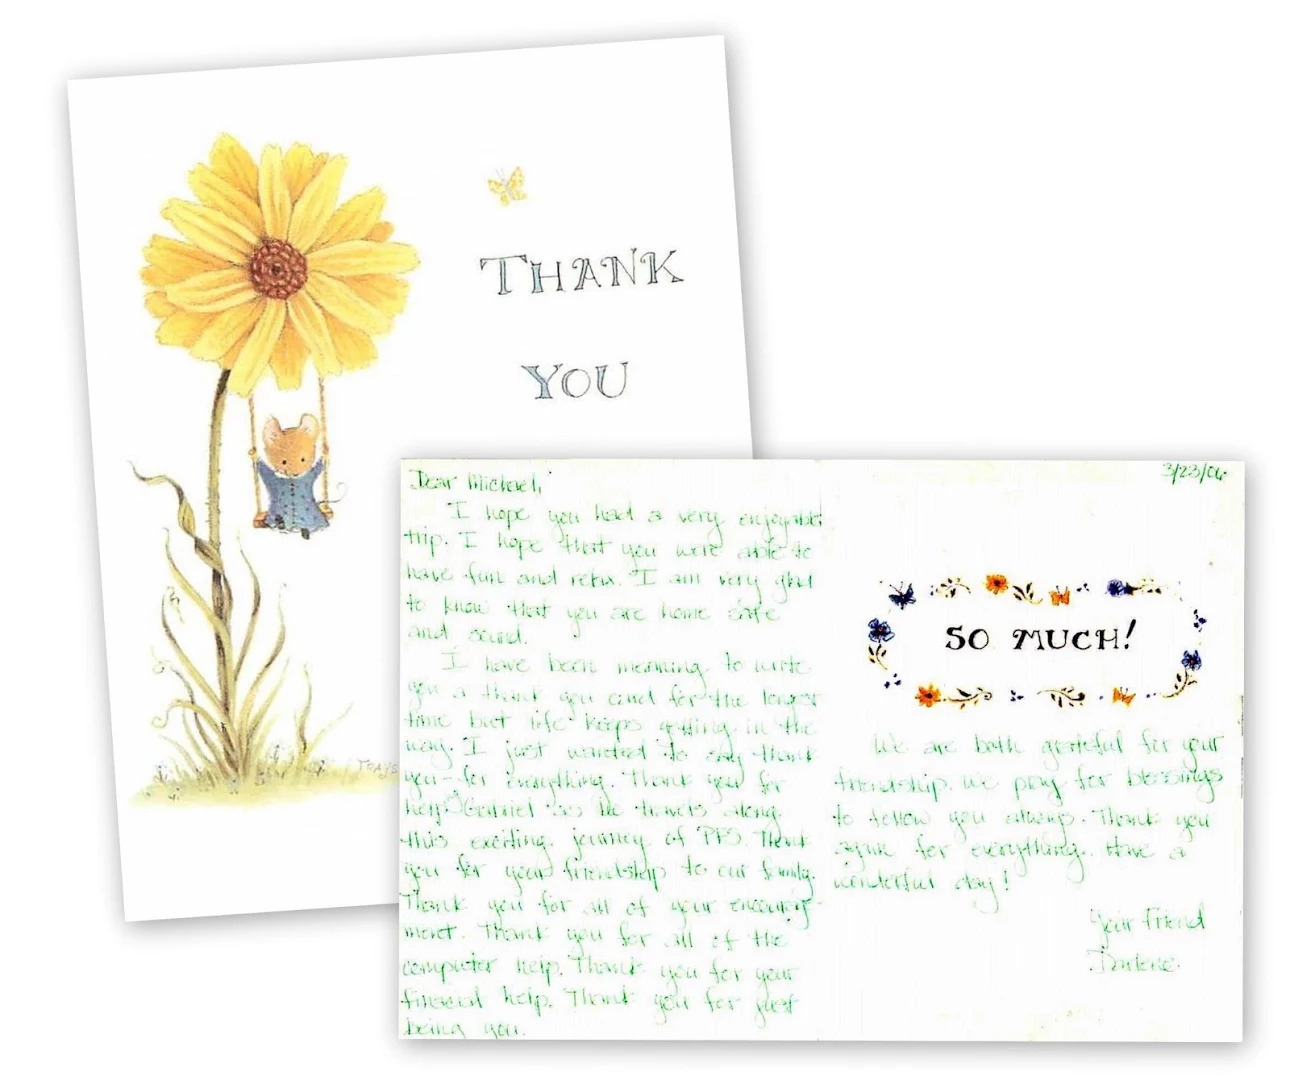 THANK
YOU
TRACYS
3/23/06
Dear Michael,
I hope you had a very enjoyable
trip. I hope that you were able to
have fun and relax. I am very glad
to know that you are home safe
and sound.
I have been meaning to write
you a thank you card for the longest
time but life keeps getting in the
way. I just wanted to say thank
you for everything. Thank you for
help Gabriel as he travels along
this exciting journey of PFS. Thank
you for your friendship to our family.
Thank you for all of your encourage-
ment. Thank you for all of the
computer help. Thank you for your
financial help. Thank you for just
being you.
SO MUCH!
We are both grateful for your
friendship. We pray for blessings
to follow you always. Thank you
again for everything. Have a
wonderful day!
Your Friend
Darlene